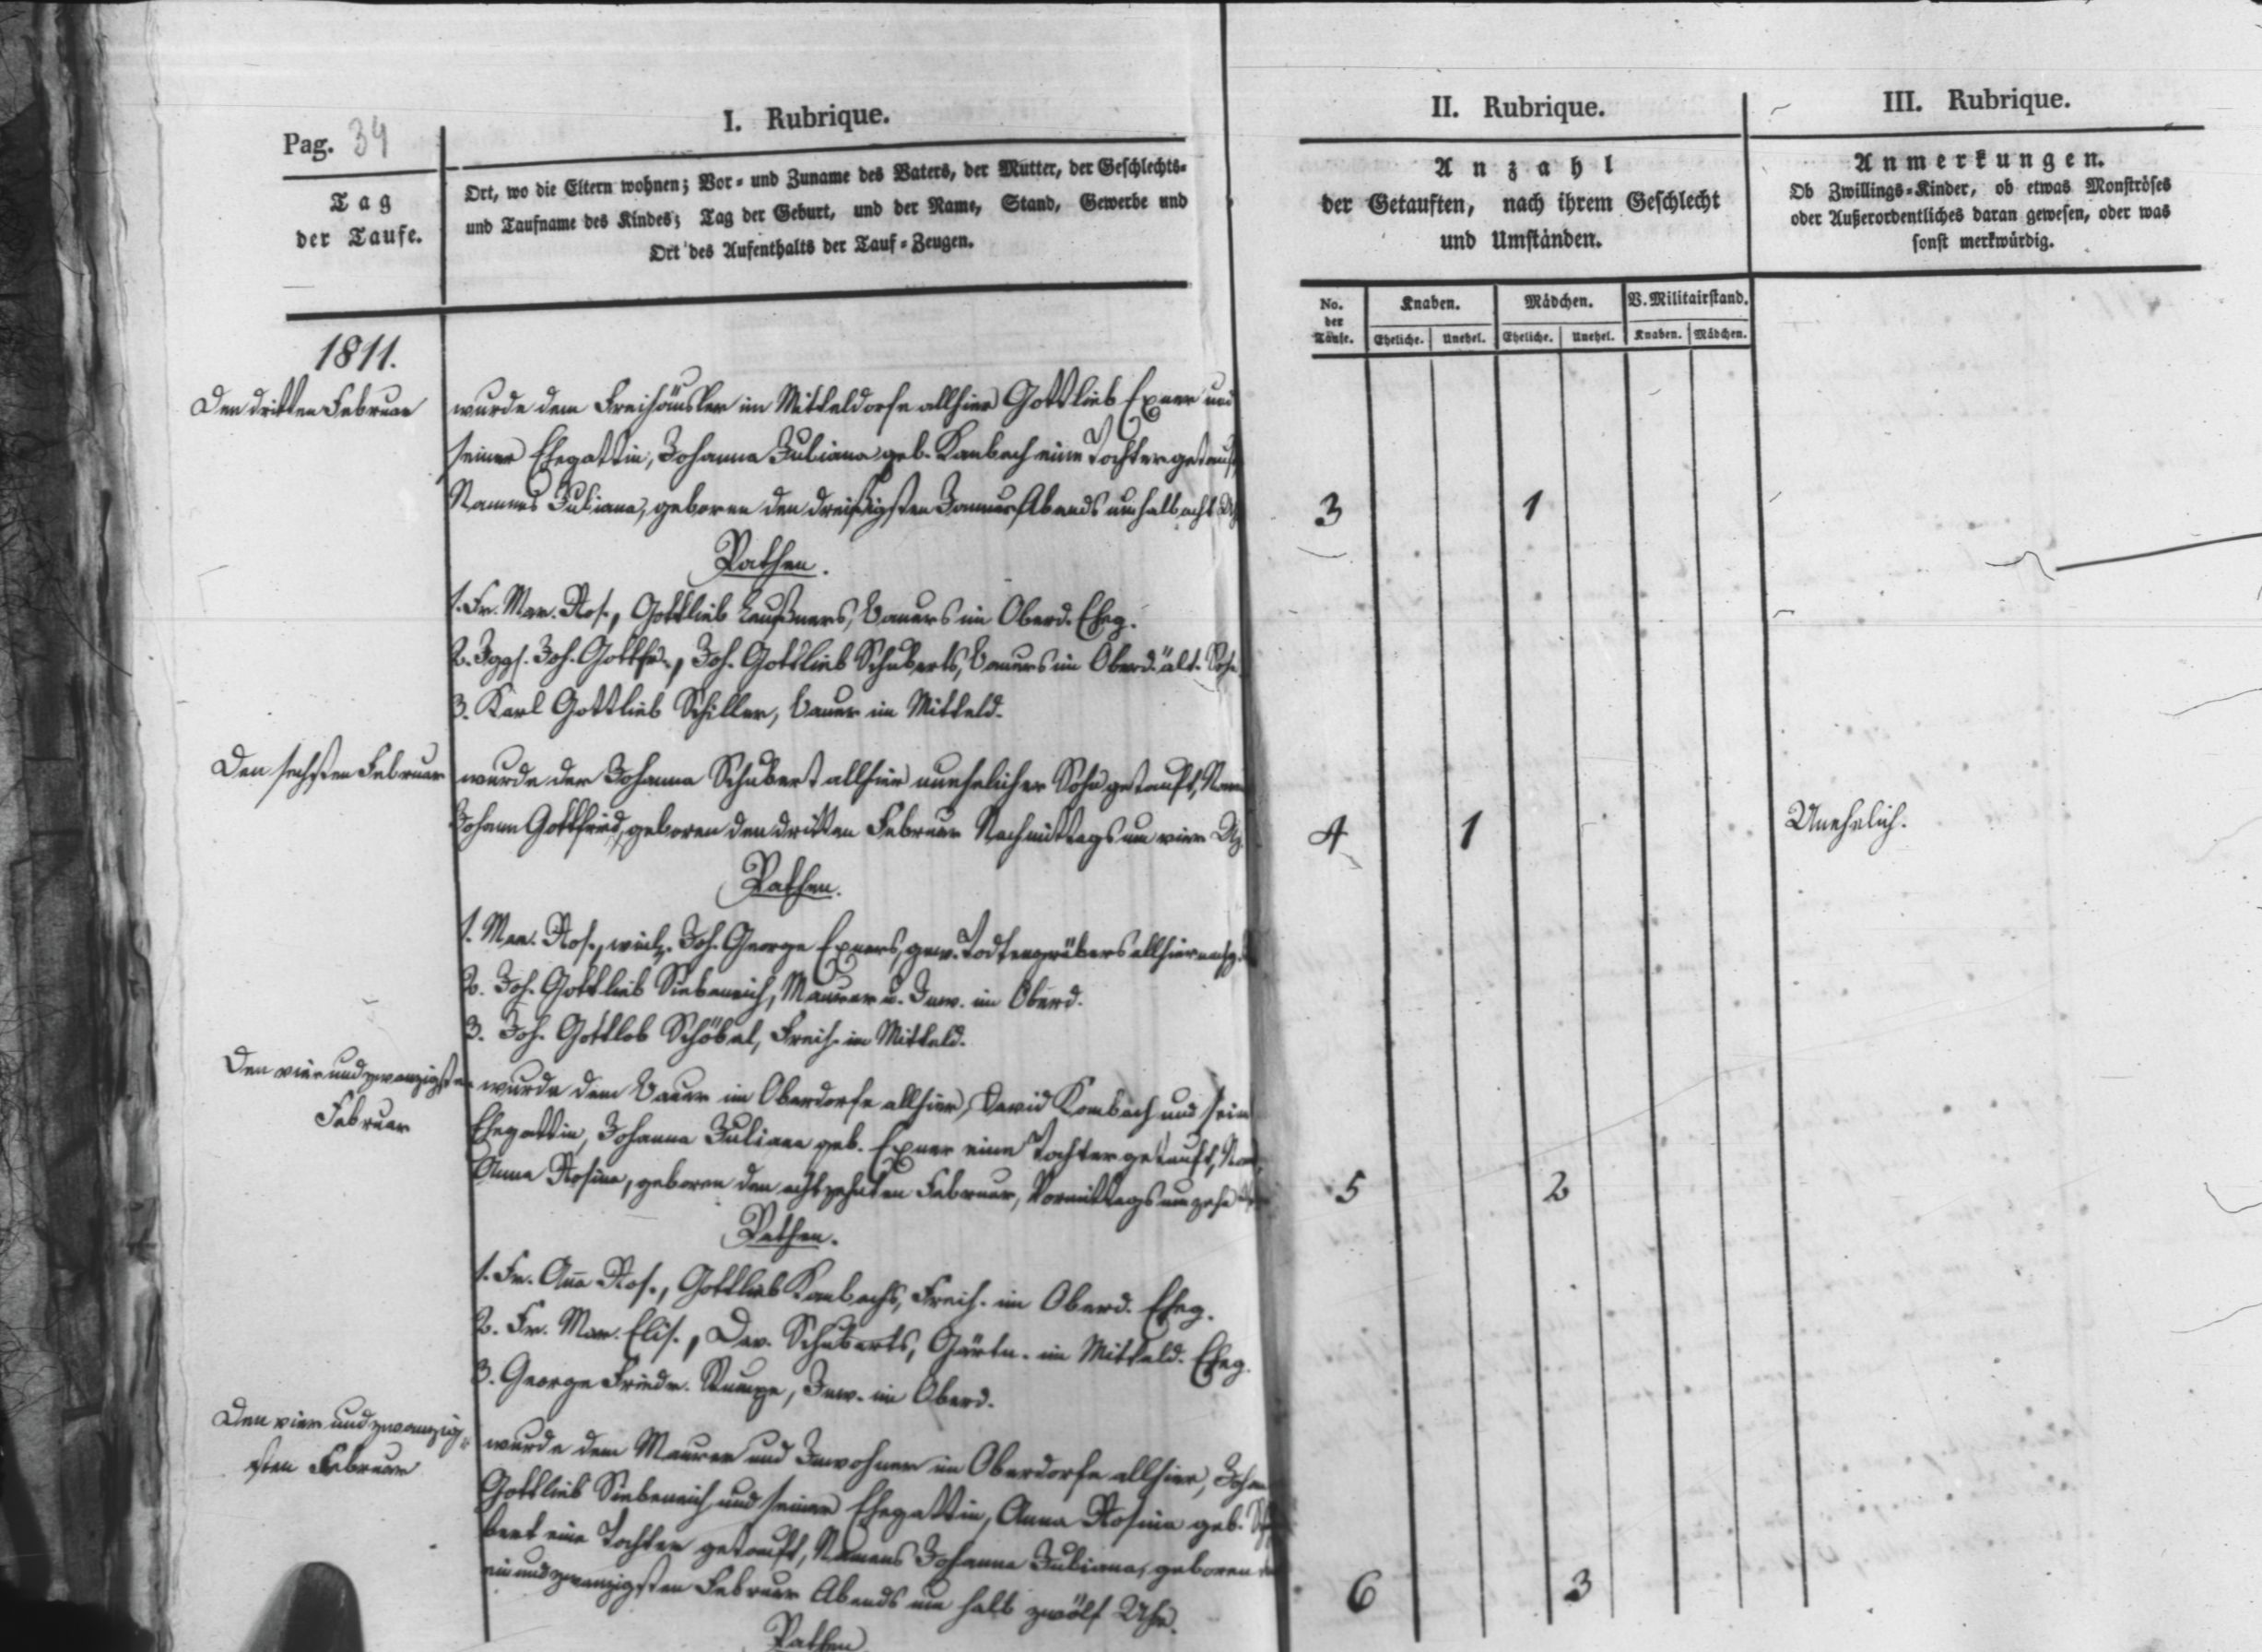 Pag. 34
I. Rubrique.
Tag
der Taufe.
Ort, wo die Eltern wohnen; Vor- und Zuname des Vaters, der Mutter, der Geschlechts-
und Taufname des Kindes; Tag der Geburt, und der Name, Stand, Gewerbe und
Ort des Aufenthalts der Tauf-Zeugen.
II. Rubrique.
Anzahl
der Getauften, nach ihrem Geschlecht
und Umständen.
III. Rubrique.
Anmerkungen.
Ob Zwillings-Kinder, ob etwas Monströses
oder Außerordentliches daran gewesen, oder was
sonst merkwürdig.
No. der Taufe.
Knaben. Mädchen. V. Militairstand.
Eheliche. Unehel. Eheliche. Unehel. Knaben. Mädchen.
1811.
Den dritten Februar
wurde dem Freihäusler im Mitteldorfe allhier Gottlieb Exner und
seiner Ehegattin, Johanna Juliana geb. Kambach eine Tochter getauft,
Namens Juliana, geboren den dreißigsten Januar Abends um halb acht
3 1
Pathen.
1. Fr. Mar. Ros., Gottlieb Bauers im Oberd. Eheg.
2. Jggs. Joh. Gottfr., Joh. Gottlieb Schuberts, Bauers im Oberd. ält. Sohn
3. Karl Gottlieb Schiller, Bauer im Mitteld.
Den sechsten Februar
wurde der Johanna Schubert allhier unehelicher Sohn getauft,
Johann Gottfried, geboren den dritten Februar Nachmittags um vier
4 1 Unehelich.
Pathen.
1. Mar. Ros., Joh. George Exners, gew. Todtengräbers allhier
2. Joh. Gottlieb Siebeneich, Maurer u. Inw. im Oberd.
3. Joh. Gottlob Schöbel, Freih. im Mitteld.
Den vier und zwanzigsten
Februar
wurde dem Bauer im Oberdorfe allhier, David Kambach und
Ehegattin, Johanna Juliana geb. Exner eine Tochter getauft,
Anna Rosina, geboren den achtzehnten Februar, Vormittags um zehn
5 2
Pathen.
1. Fr. Anna Ros., Gottlieb Kambachs, Freih. im Oberd. Eheg.
2. Fr. Mar. Elis., Dav. Schuberts, Gärtn. im Mitteld. Eheg.
3. George Friedr. Inw. im Oberd.
Den vier und zwanzig-
sten Februar
wurde dem Maurer und Inwohner im Oberdorfe allhier,
Gottlieb Siebeneich und seiner Ehegattin, Anna Rosina geb.
bert eine Tochter getauft, Namens Johanna Juliana, geboren
ein und zwanzigsten Februar Abends um halb zwölf Uhr.
6 3
Pathen